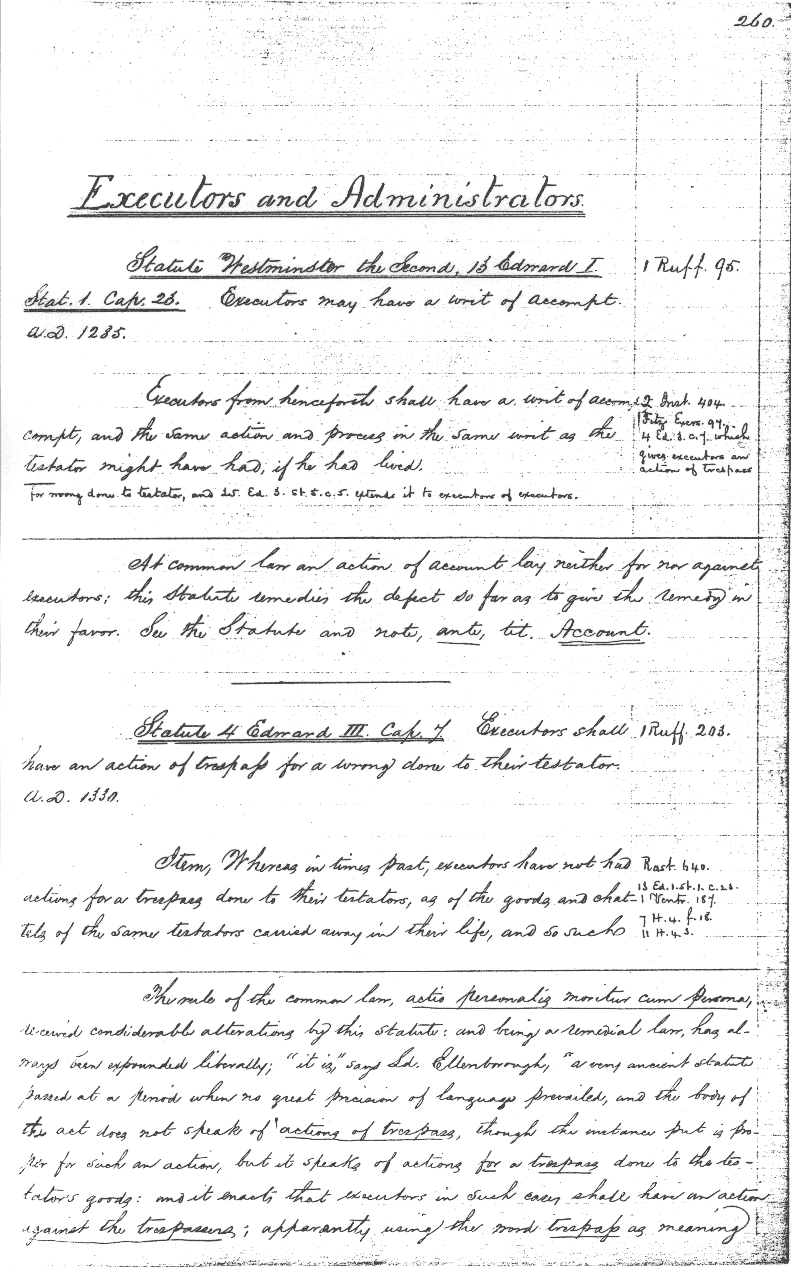 260.
Executors and Administrators.
Statute Westminster the Second, 13 Edward I.
1 Ruff. 95.
Stat. 1. Cap. 23. Executors may have a writ of accompt.
A.D. 1285.
Executors from henceforth shall have a writ of accom-
2 Inst. 404
compt, and the same action and process in the same writ as the
testator might have had, if he had lived.
Fitz. Execrs. 97.
4 Ed. 3. c. 7. which
gives executors an
action of trespass
for wrong done to testator, and 25. Ed. 3. st. 5. c. 5. extends it to executors of executors.
At common law an action of account lay neither for nor against
executors; this Statute remedies the defect so far as to give the remedy in
their favor. See the Statute and note, ante, tit. Account.
Statute 4 Edward III. Cap. 7 Executors shall
1 Ruff. 203.
have an action of trespass for a wrong done to their testator.
A.D. 1330.
Item, Whereas in times past, executors have not had
Rast. 640.
actions for a trespass done to their testators, as of the goods and chat-
tels of the same testators carried away in their life, and so such
13 Ed. 1. st. 1. c. 23.
1 Ventr. 187.
7 H. 4. f. 18.
11 H. 4. 3.
The rule of the common law, actio personalis moritur cum persona,
received considerable alterations by this statute: and being a remedial law, has al-
ways been expounded liberally; "it is," says Ld. Ellenborough, "a very ancient statute
passed at a period when no great precision of language prevailed, and the body of
the act does not speak of 'actions of trespass, though the instance put is pro-
per for such an action, but it speaks of actions for a trespass done to the tes-
tator's goods: and it enacts that executors in such cases shall have an action
against the trespassers; apparently using the word trespass as meaning